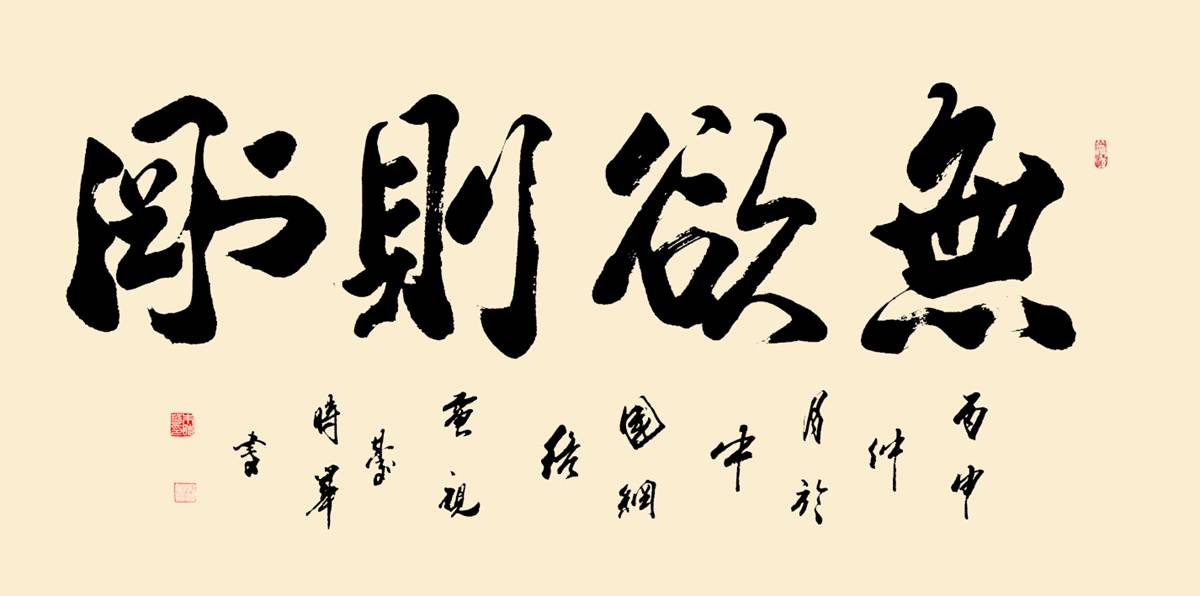 無欲則剛
丙申仲月於中國網絡電視臺時華書